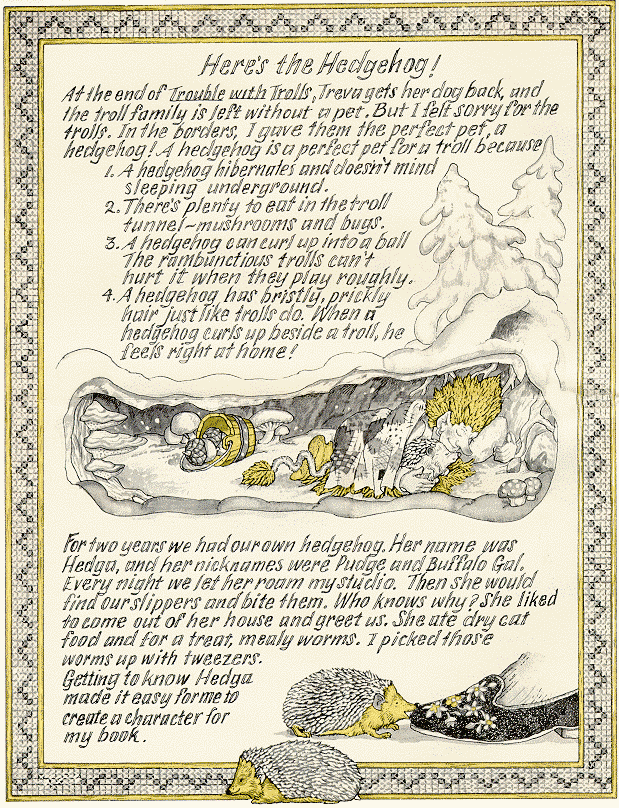 Here's the Hedgehog!
At the end of Trouble with Trolls, Treva gets her dog back, and
the troll family is left without a pet. But I felt sorry for the
trolls. In the borders, I gave them the perfect pet, a
hedgehog! A hedgehog is a perfect pet for a troll because
1. A hedgehog hibernates and doesn't mind
sleeping underground.
2. There's plenty to eat in the troll
tunnel-mushrooms and bugs.
3. A hedgehog can curl up into a ball
The rambunctious trolls can't
hurt it when they play roughly.
4. A hedgehog has bristly, prickly
hair just like trolls do. When a
hedgehog curls up beside a troll, he
feels right at home!
For two years we had our own hedgehog. Her name was
Hedga, and her nicknames were Pudge and Buffalo Gal.
Every night we let her roam my studio. Then she would
find our slippers and bite them. Who knows why? She liked
to come out of her house and greet us. She ate dry cat
food and for a treat, mealy worms. I picked those
worms up with tweezers.
Getting to know Hedga
made it easy for me to
create a character for
my book.